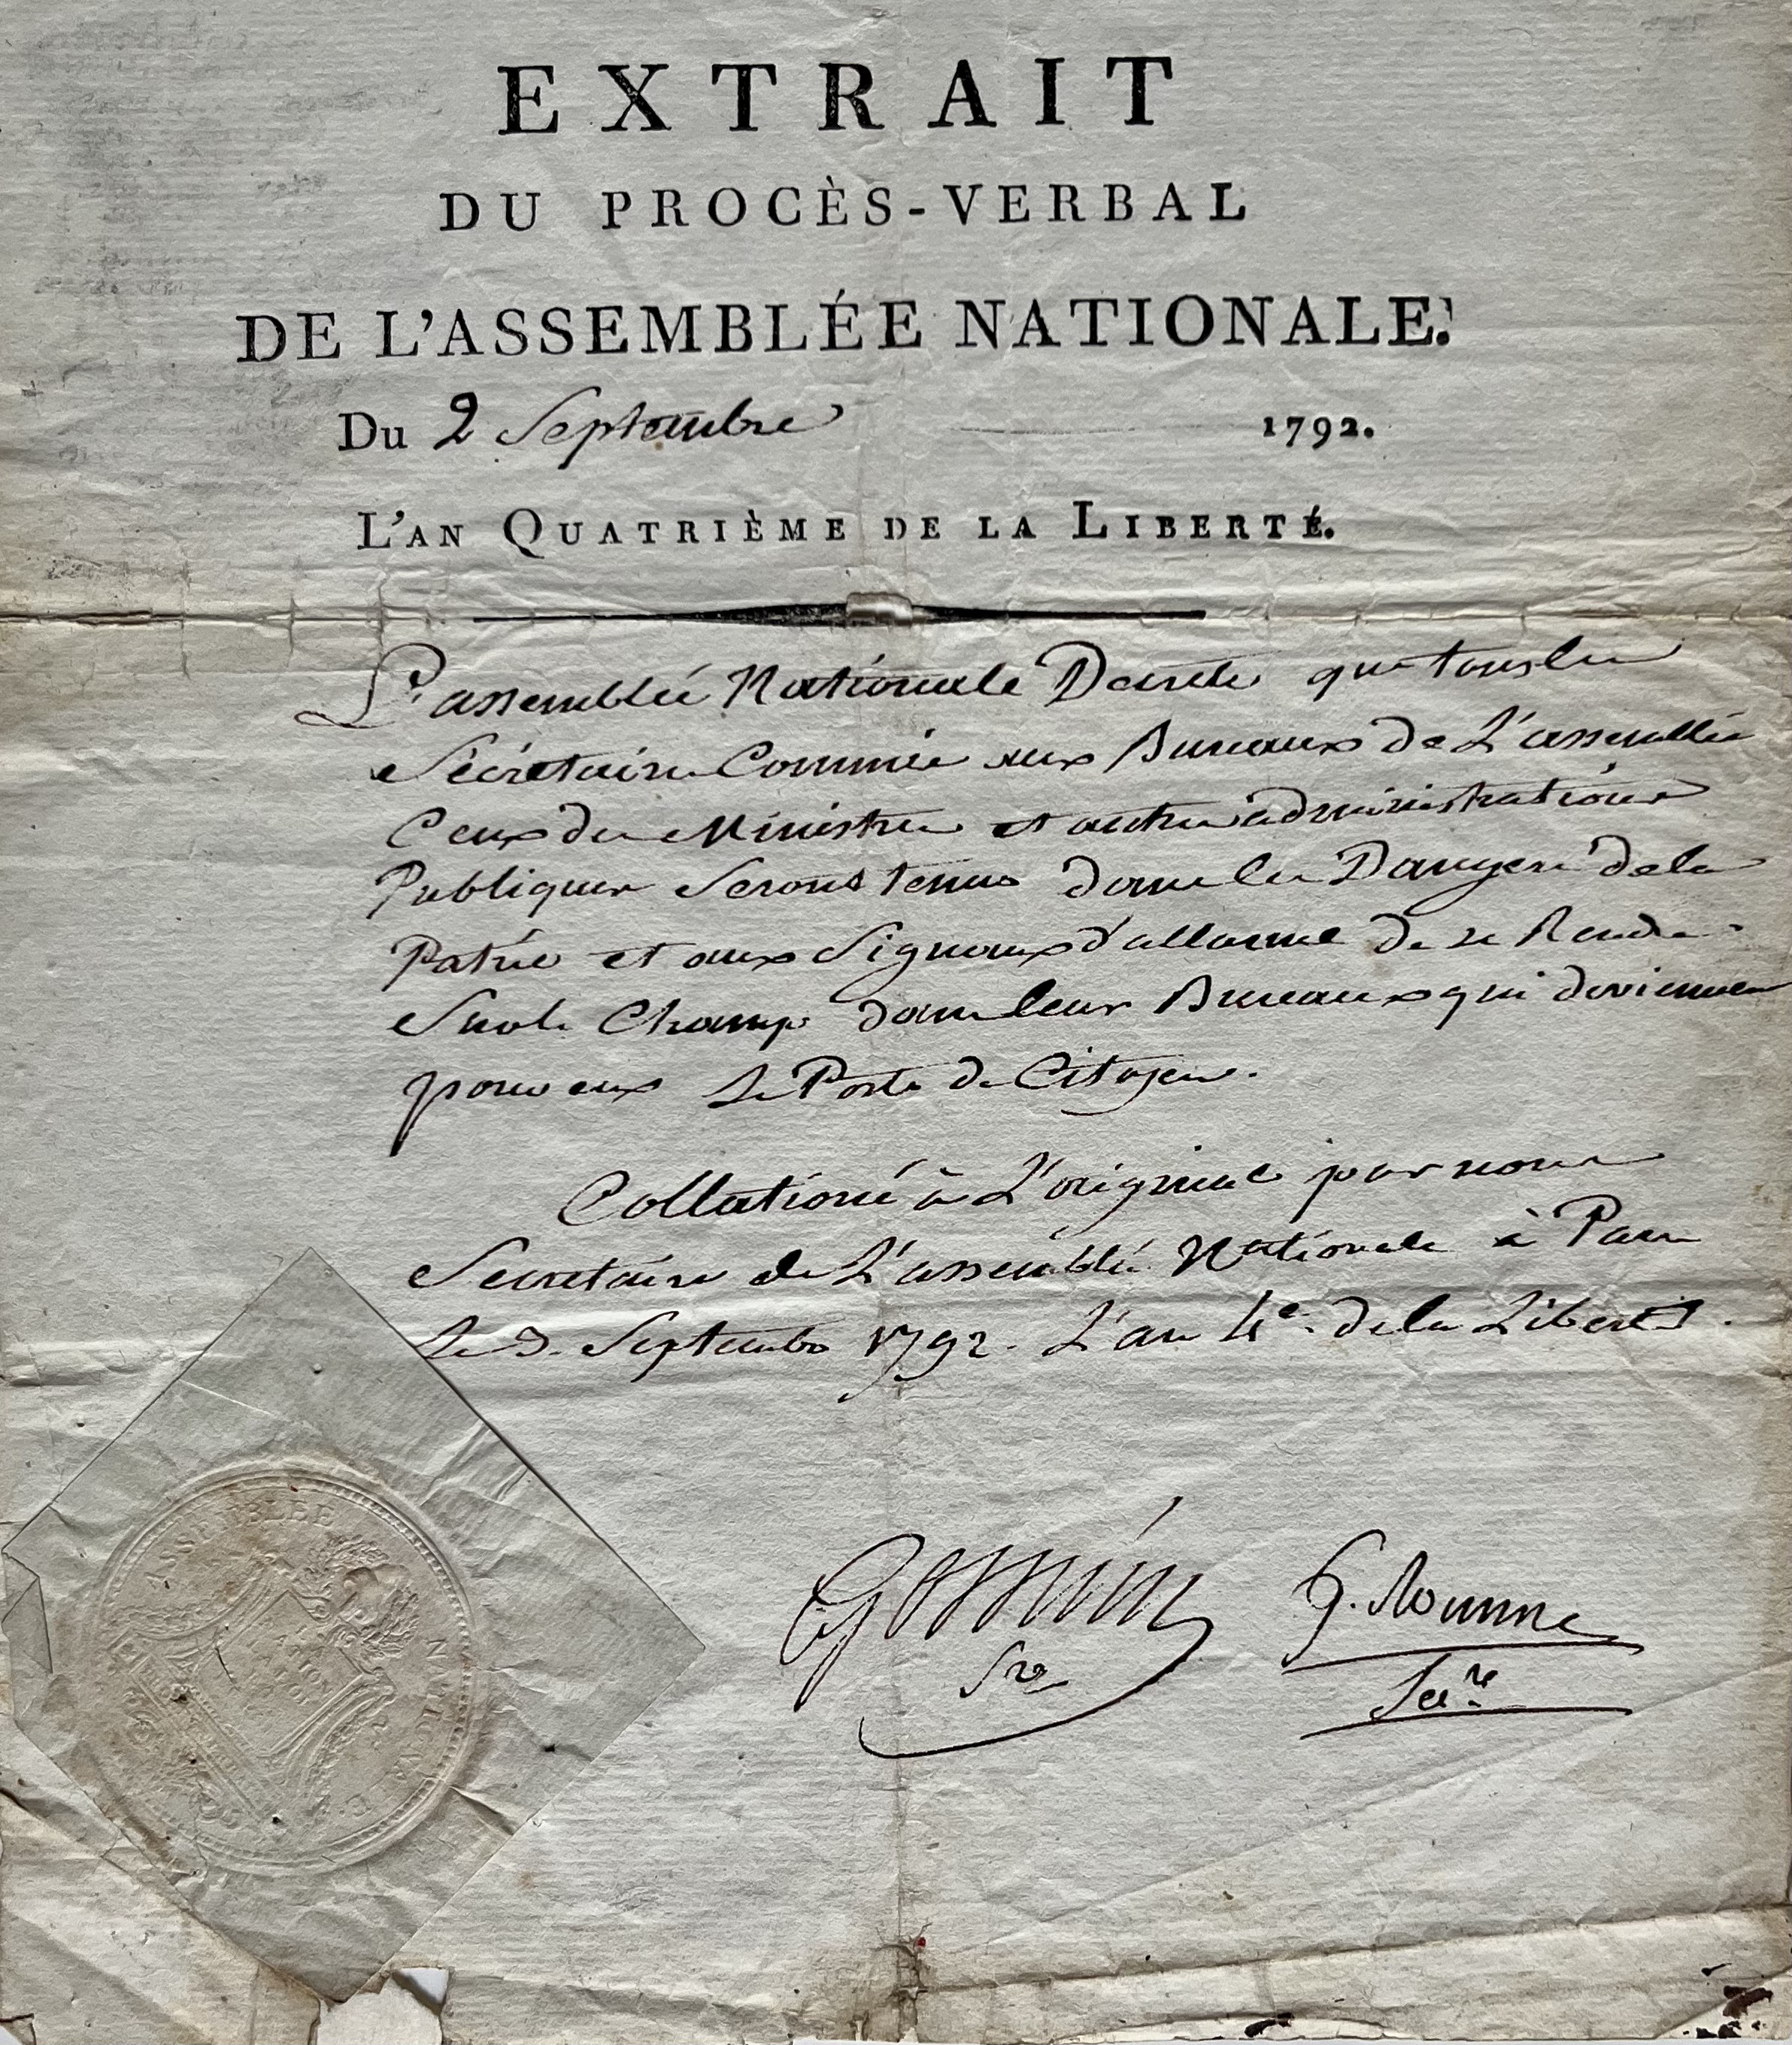 EXTRAIT
DU PROCÈS-VERBAL
DE L'ASSEMBLÉE NATIONALE.
Du 2 Septembre 1792.
L'AN QUATRIÈME DE LA LIBERTÉ.
L'assemblée Nationale Decrete que tous les
Sécrétaires Commis aux Bureaux de L'assemblée
Ceux des Ministres et autres administrations
Publiques Seront tenus dans les Dangers de la
Patrie et aux Signaux d'allarme de se Rendre
Surle Champ dans leurs Bureaux qui deviennent
pour eux Le Poste de Citoyen.
Collationé à L'original par nous
Secretaires de L'assemblée Nationale à Paris
Le 3. Septembre 1792. L'an 4e. de la Liberté.
Gossuin G. Romme
Sre Secre
ASSEMBLÉE NATIONALE